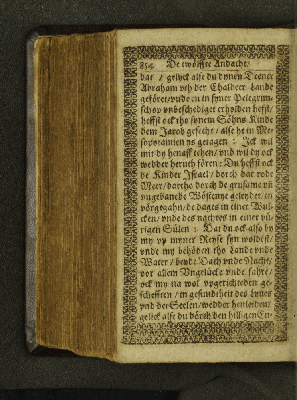 854 De twölffte Andacht/
dat / gelyck alse du dynen Deener
Abraham vth der Chaldeer Lande
geföret/vnde en in syner Pelegrim-
schop vnbeschediget erholden hefst/
heffst ock tho synem Söhns Kinde
dem Jacob gesecht / alse he in Me-
sopotamien ys getagen : Ick wil
mit dy henaff tehen/ vnd wil dy ock
wedder heruth fören: Du heffst ock
de Kinder Jsrael / dorch dat rode
Meer/ dartho dorch de grusame vñ
vngebanede Wöstenye geleydet/ en
vörgegahn/ de dages in einer Wul-
cken/ vnde des nachtes in einer vü-
rigen Sülen : Dat du ock also by
my vp myner Reyse syn woldest/
vnde my behöden tho Lande vnde
Water / beyde Dach vnde Nacht/
vor allem Vngelück vnde fahre/
ock my na wol vthgerichteden ge-
schefften / in gesundtheit des Lyues
vnd der Seelen/wedder henleiden/
gelick alse du dörch den hilligen En-